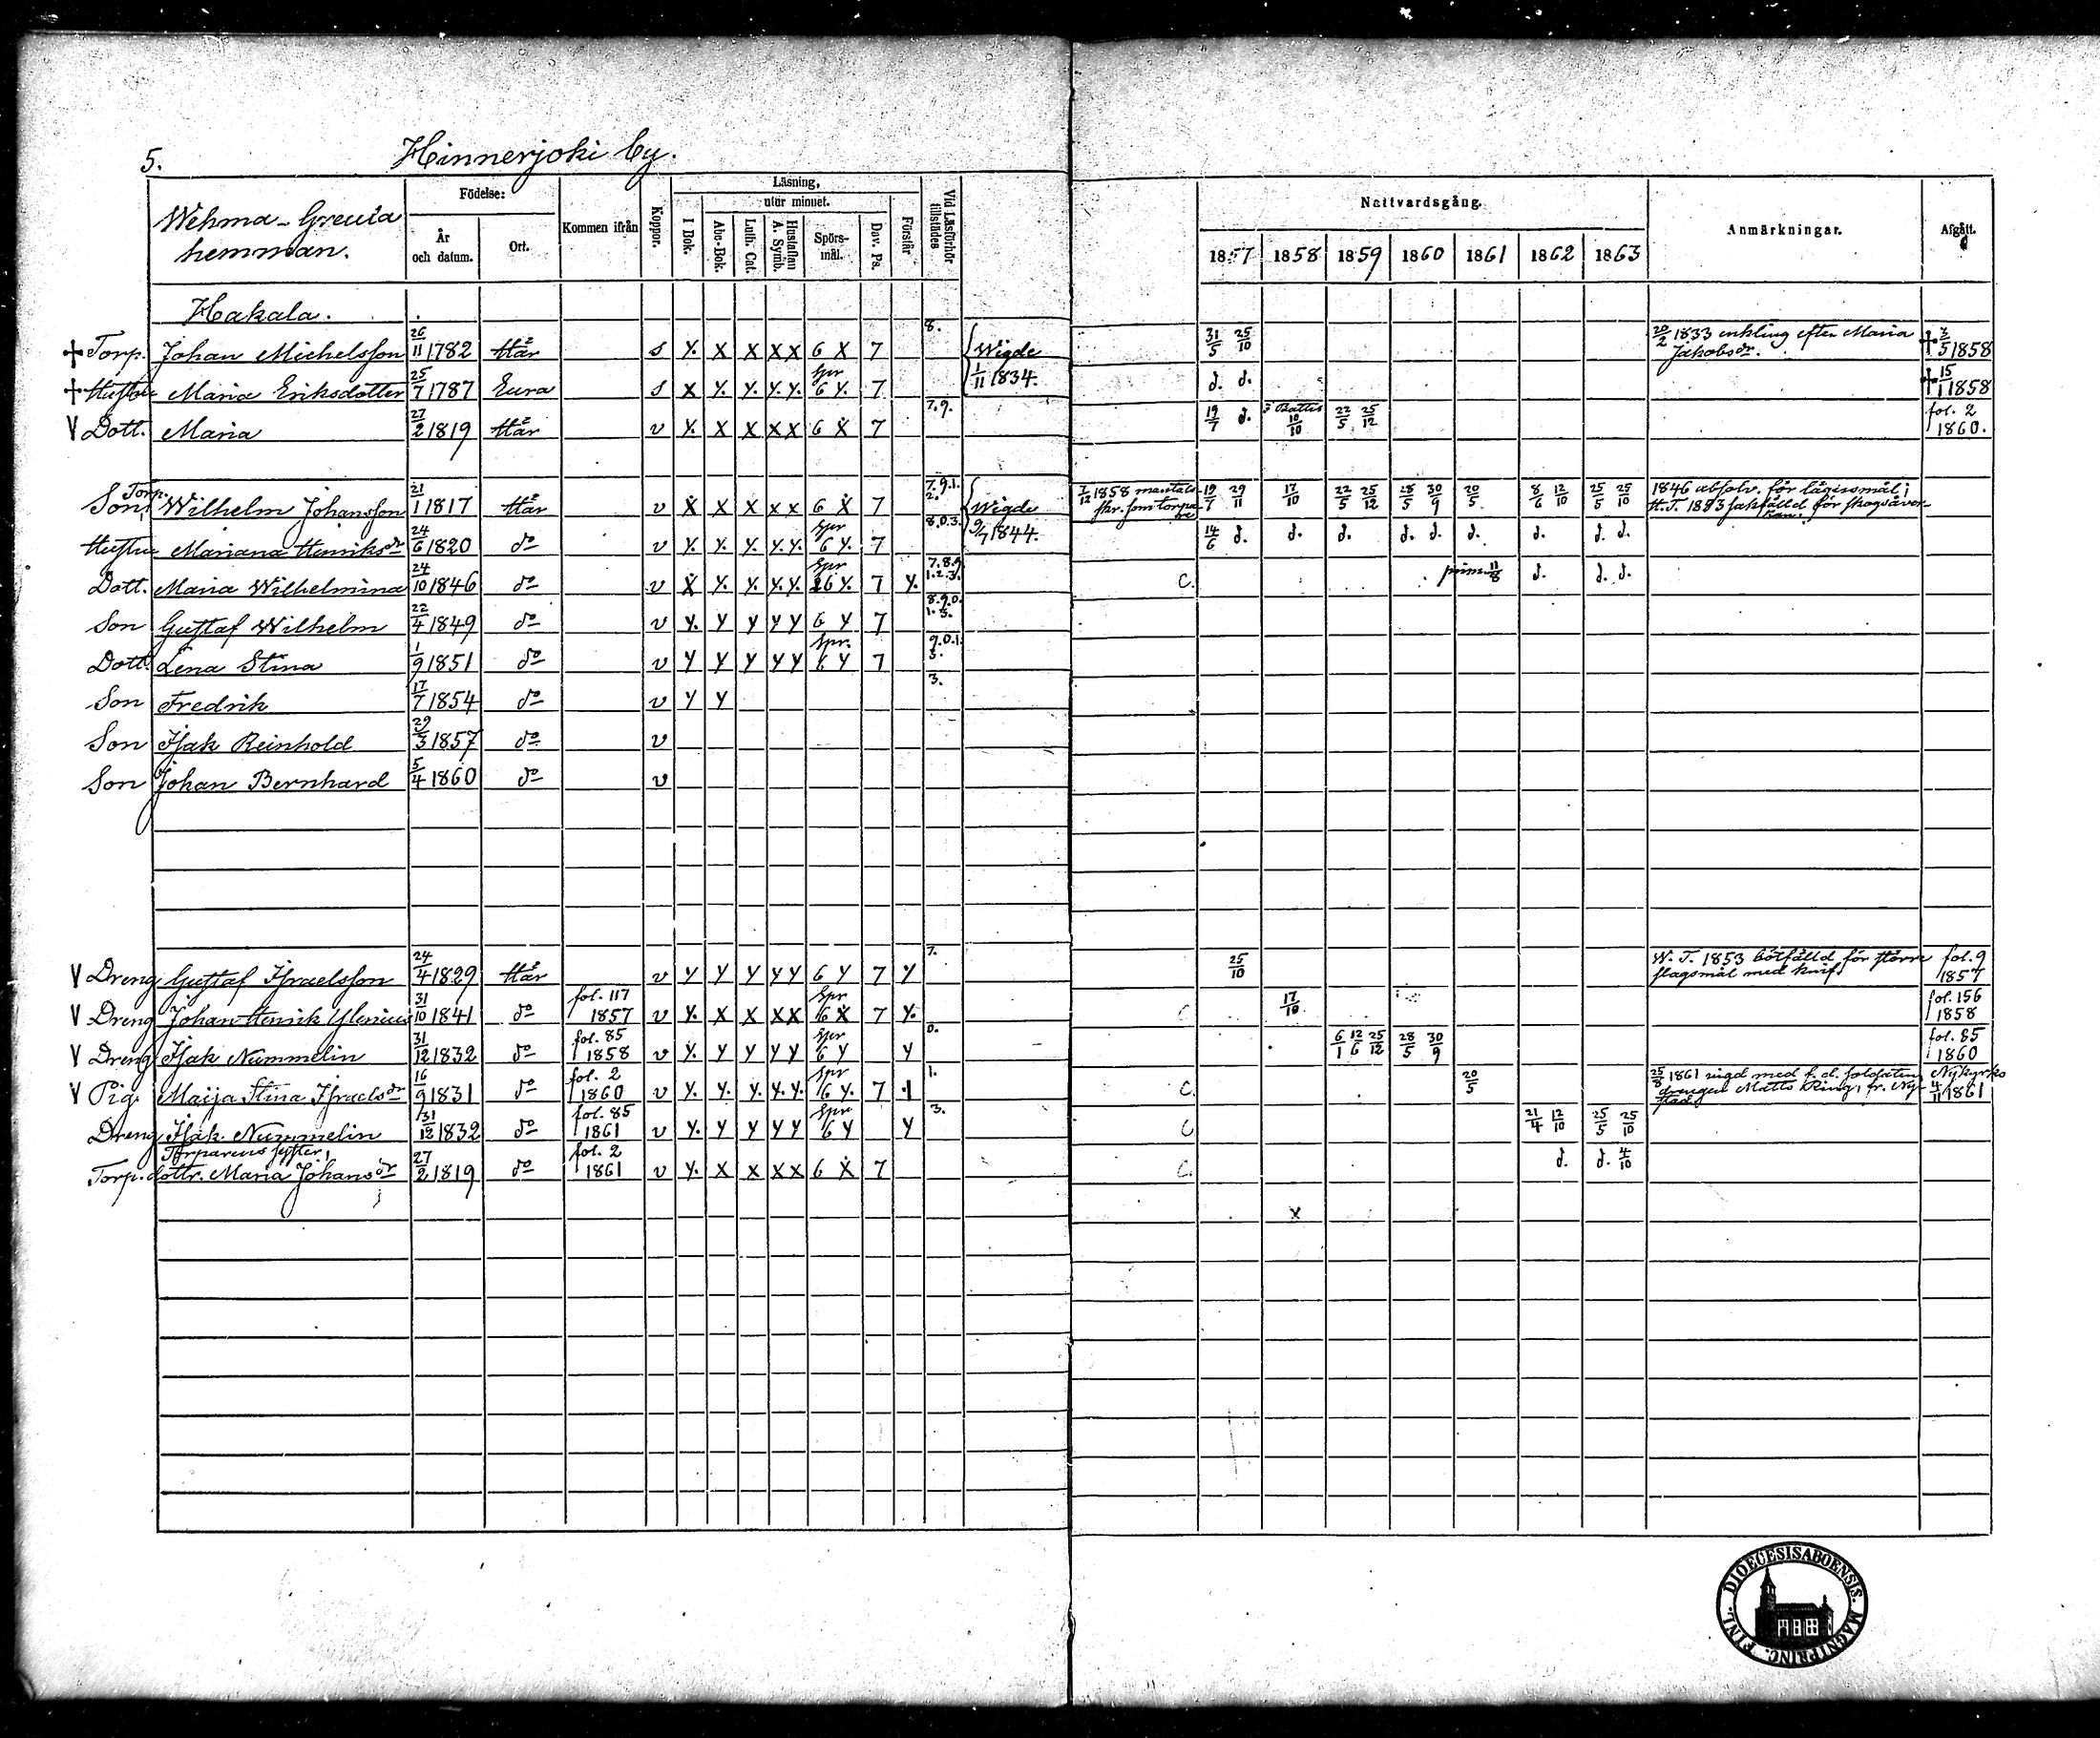 5. Hinnerjoki by.
Wehma-Greula hemman.
Födelse: År och datum. Ort. Kommen ifrån Koppor. Läsning, utur minnet. I Bok. Abc-Bok. Luth. Cat. Hustaflan A. Symb. Spörs-mål. Dav. Ps. Förstår Vid Läsförhör tillstädes Nattvardsgång. 1857 1858 1859 1860 1861 1862 1863 Anmärkningar. Afgått.
Hakala.
† Torp. Johan Michelsson 26/11 1782 Här s y. x x x x 6 x 7 8. Wigde 1/11 1834. 31/5 25/10 20/2 1833 enkling efter Maria Jakobsdr. † 3/5 1858
† Hustru Maria Eriksdotter 25/7 1787 Eura s x y. y. y. y. Spr 6 y. 7 d. d. † 15/1 1858
V Dott. Maria 27/2 1819 Här v y. x x x x 6 x 7 7.9. 19/7 d. 10/10 22/5 25/12 fol. 2 1860.
Torp. Son, Wilhelm Johansson 21/1 1817 Här v x x x x x 6 x 7 7.9.1. 2. Wigde 9/7 1844. 7/12 1858 mantals-skr. som torpa-re 19/7 29/11 17/10 22/5 25/12 28/5 30/9 20/5 8/6 12/10 25/5 25/10 1846 absolv. för lägersmål; H.T. 1853 sakfälld för skogsåver-kan.
Hustru Mariana Henriksdr 24/6 1820 do v y. y. y. y. y. Spr 6 y. 7 8.0.3. 14/6 d. d. d. d. d. d. d. d. d.
Dott. Maria Wilhelmina 24/10 1846 do v x y. y. y. y. Spr 6 y. 7 y. 7.8.9 1.2.3. C. prim. 11/8 d. d. d.
Son Gustaf Wilhelm 22/4 1849 do v y. y y y y 6 y 7 8.9.0. 1.3.
Dott. Lena Stina 1/9 1851 do v y y y y y Spr. 6 y 7 9.0.1. 3.
Son Fredrik 17/7 1854 do v y y 3.
Son Isak Reinhold 29/3 1857 do v
Son Johan Bernhard 5/4 1860 do v
V Dreng Gustaf Israelsson 24/4 1829 Här v y y y y y 6 y 7 y 7. 25/10 W.T. 1853 bötfälld för större slagsmål med knif. fol. 9 1857
V Dreng Johan Henrik Ylenius 31/10 1841 do fol. 117 1857 v y. x x x x Spr 6 x 7 y. C 17/10 fol. 156 1858
V Dreng Isak Nummelin 31/12 1832 do fol. 85 1858 v y. y y y y Spr 6 y y 0. 6/1 12/6 25/12 28/5 30/9 fol. 85 1860
V Pig. Maija Stina Israelsdr 16/9 1831 do fol. 2 1860 v y. y. y. y. y. Spr 6 y. 7 1. C. 20/5 25/8 1861 vigd med f.d. soldaten, drengen Matts Ring, fr. Ny-stad. Nykyrko 4/11 1861
Dreng Isak Nummelin 31/12 1832 do fol. 85 1861 v y. y y y y Spr 6 y y 3. C 21/4 12/10 25/5 25/10
Torparens syster,
Torp. dottr. Maria Johansdr 27/2 1819 do fol. 2 1861 v y. x x x x 6 x 7 C. d. d. 4/10
x
DIOECESIS ABOENSIS. MAGNI PRINC. FINL.